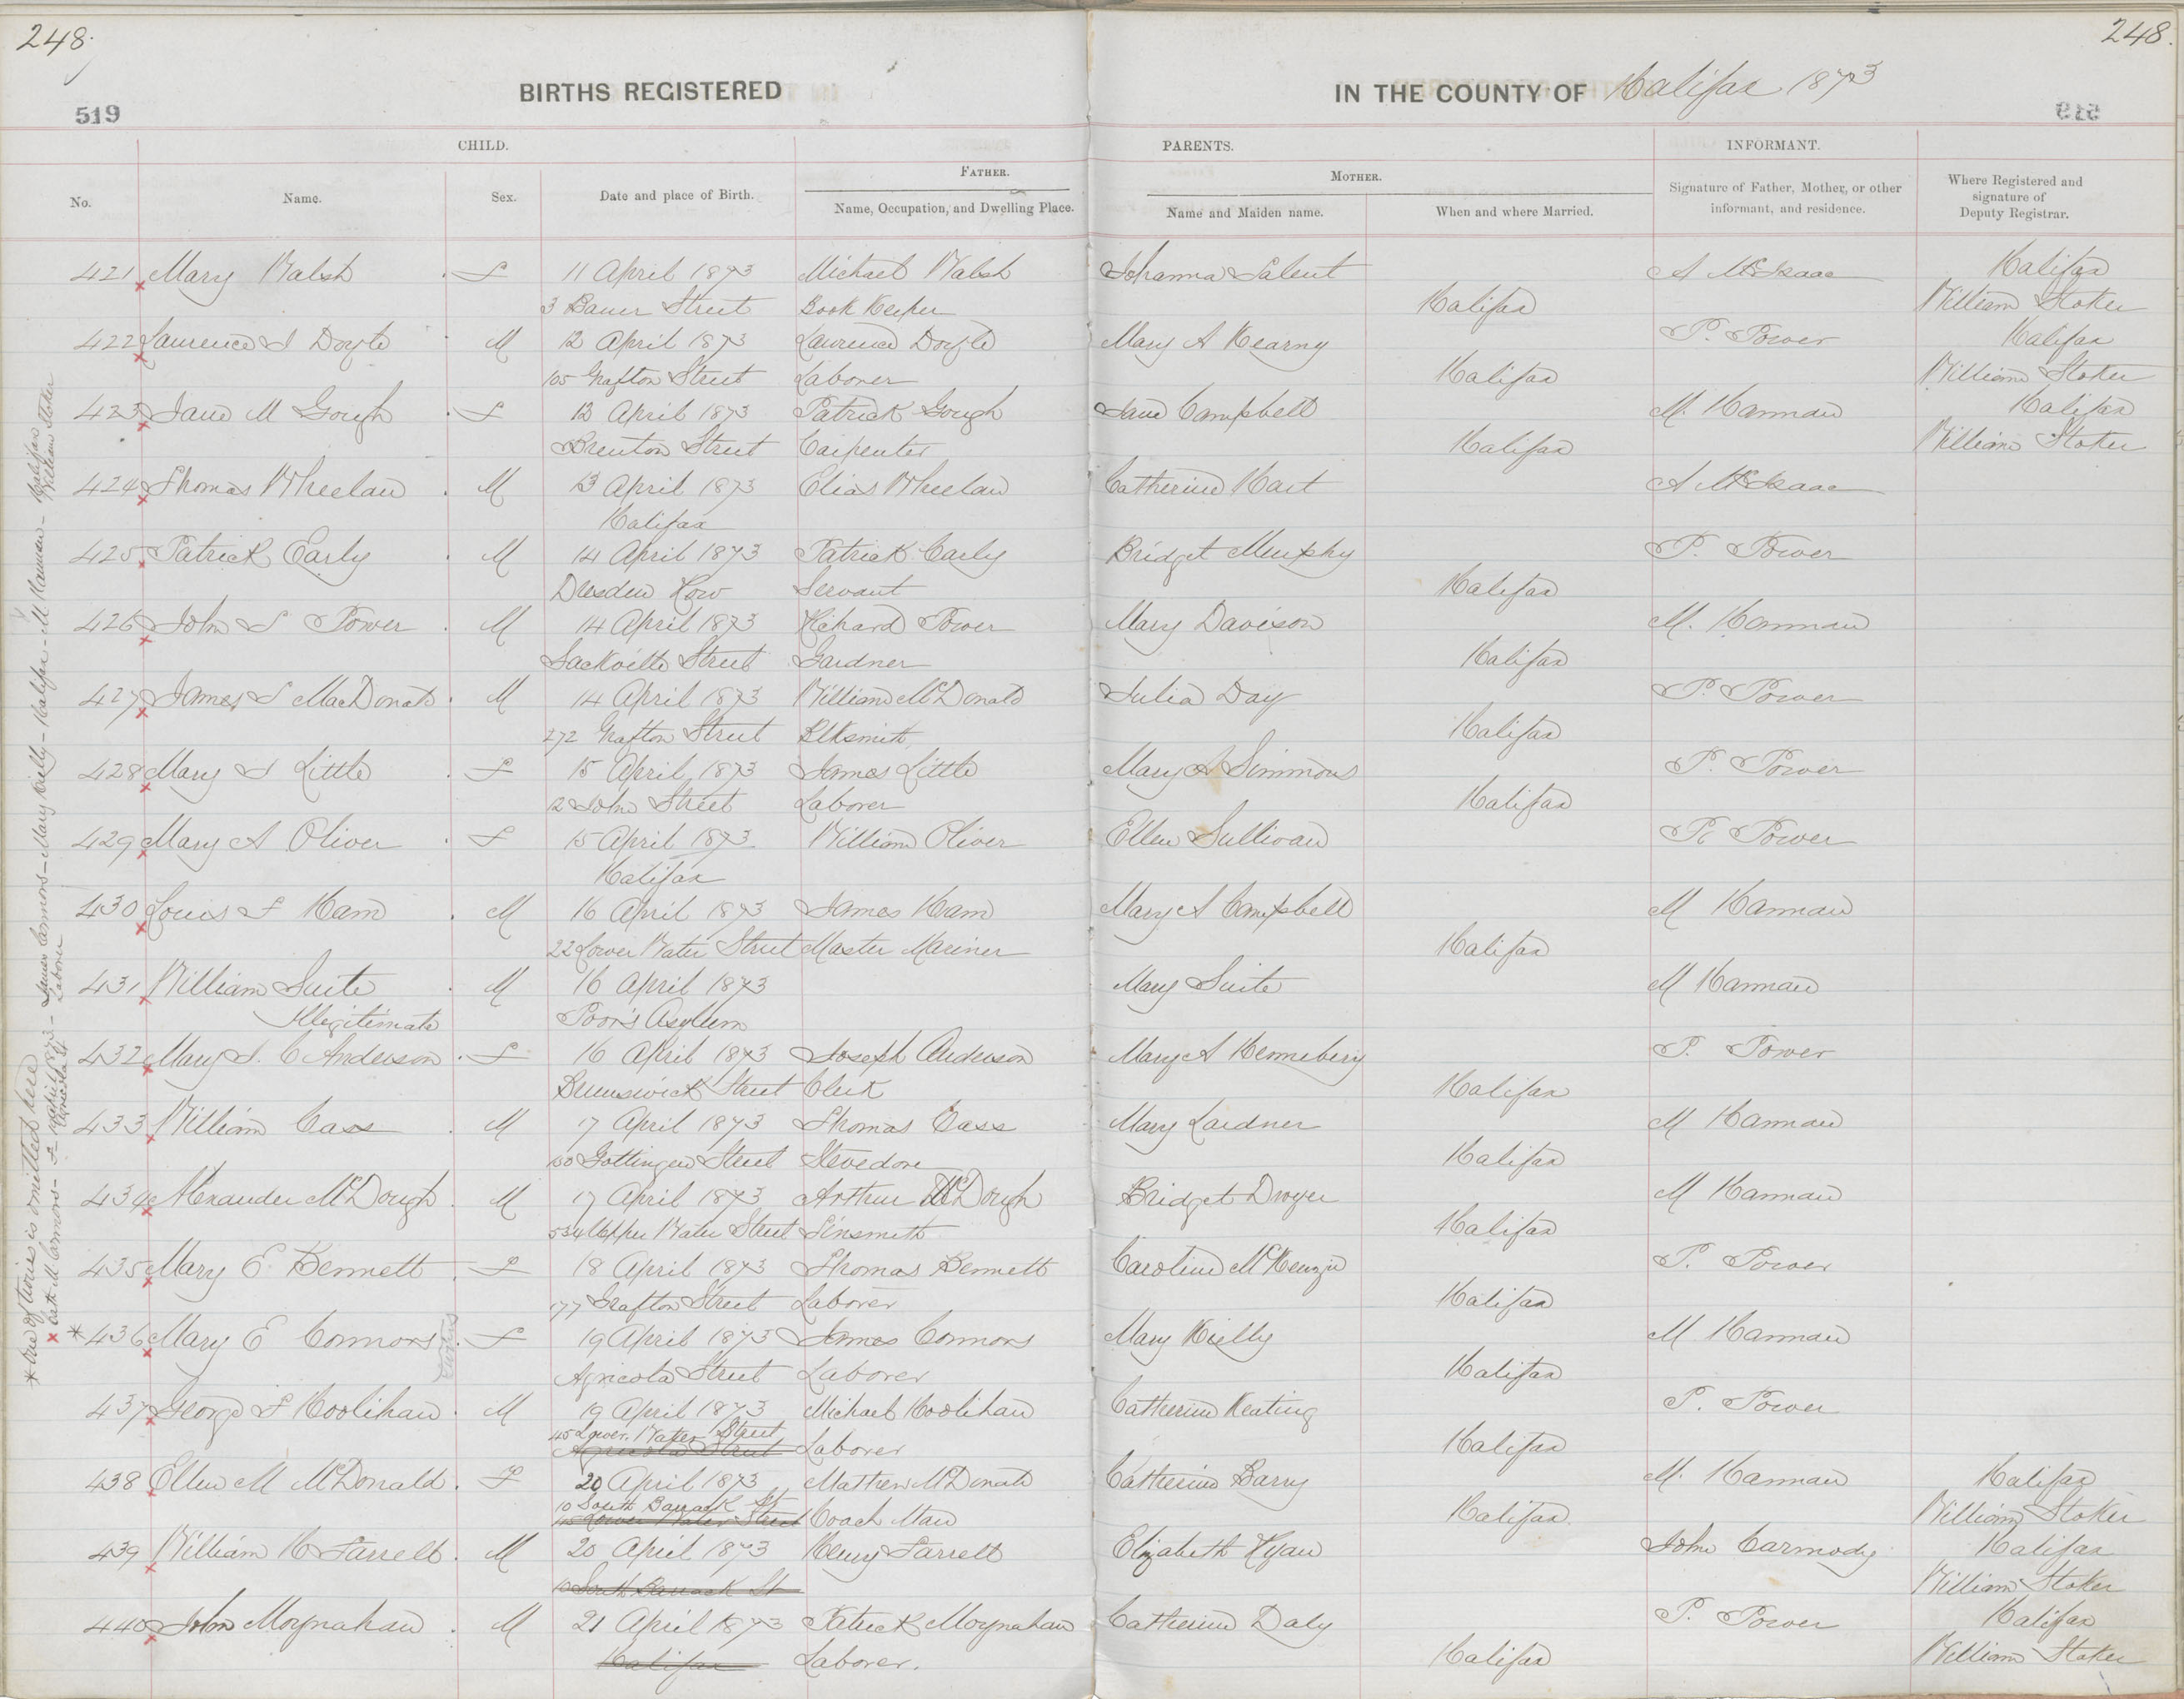 248.
248.
BIRTHS REGISTERED
IN THE COUNTY OF Halifax 1873
519
CHILD.
PARENTS.
INFORMANT.
No.
Name.
Sex.
Date and place of Birth.
FATHER.
Name, Occupation, and Dwelling Place.
MOTHER.
Name and Maiden name.
When and where Married.
Signature of Father, Mother, or other informant, and residence.
Where Registered and signature of Deputy Registrar.
421 Mary Walsh F 11 April 1873 Michael Walsh Johanna A McIsaac Halifax
3 Bauer Street Book Keeper Halifax William Stoker
422 Laurence J Doyle M 12 April 1873 Lawrence Doyle Mary A Kearny P. Power Halifax
105 Grafton Street Laborer Halifax William Stoker
423 Jane M Gough F 12 April 1873 Patrick Gough Jane Campbell M. Hannan Halifax
Brenton Street Carpenter Halifax William Stoker
424 Thomas Wheelan M 13 April 1873 Elias Wheelan Catherine Hart A McIsaac
Halifax
425 Patrick Early M 14 April 1873 Patrick Early Bridget Murphy P. Power
Dresden Row Servant Halifax
426 John J Power M 14 April 1873 Richard Power Mary Davison M. Hannan
Sackville Street Gardner Halifax
427 James J MacDonald M 14 April 1873 William McDonald Julia Day P. Power
272 Grafton Street Blksmith Halifax
428 Mary J Little F 15 April 1873 James Little Mary A Simmons P. Power
12 John Street Laborer Halifax
429 Mary A Oliver F 15 April 1873 William Oliver Ellen Sullivan P. Power
Halifax
430 Louis F Ham M 16 April 1873 James Ham Mary A Campbell M Hannan
22 Lower Water Street Master Mariner Halifax
431 William Suite M 16 April 1873 Mary Suite M Hannan
Illegitimate Poor's Asylum
432 Mary J. C Anderson F 16 April 1873 Joseph Anderson Mary A Hennebery P. Power
Brunswick Street Clerk Halifax
433 William Cass M 17 April 1873 Thomas Cass Mary Lardner M Hannan
150 Gottingen Street Stevedore Halifax
434 Alexander McDough M 17 April 1873 Arthur McDough Bridget Dwyer M Hannan
534 Upper Water Street Tinsmith Halifax
435 Mary E Bennett F 18 April 1873 Thomas Bennett Caroline McKenzie P. Power
177 Grafton Street Laborer Halifax
* 436 Mary E Connors F 19 April 1873 James Connors Mary Kielly M Hannan
Agricola Street Laborer Halifax
437 George F Hoolihan M 19 April 1873 Michael Hoolihan Catherine Keating P. Power
45 Lower Water Street
Agricola Street Laborer Halifax
438 Ellen M McDonald F 20 April 1873 Mathew McDonald Catherine Barry M. Hannan Halifax
10 South Barrack St
45 Lower Water Street Coach Man Halifax William Stoker
439 William H Farrell M 20 April 1873 Henry Farrell Elizabeth Ryan John Carmody Halifax
10 South Barrack St William Stoker
440 John Moynahan M 21 April 1873 Patrick Moynahan Catherine Daly P. Power Halifax
Halifax Laborer. Halifax William Stoker
* One of twins is omitted here
Cath M Connors - F - 19 April 1873 - James Connors - Mary Kielly - Halifax - M Hannan - Halifax
Agricola St Laborer William Stoker